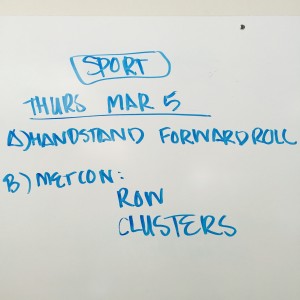 SPORT
THURS MAR 5
A) HANDSTAND FORWARD ROLL
B) METCON:
ROW
CLUSTERS